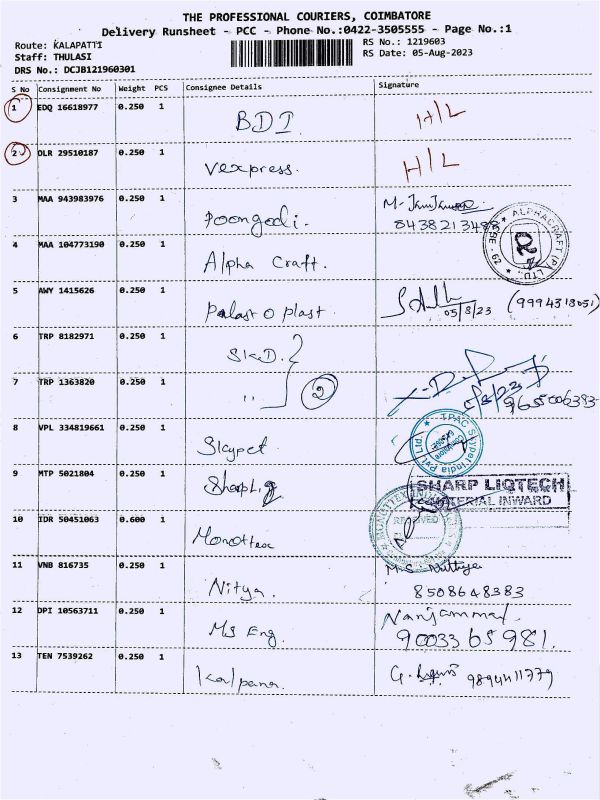 THE PROFESSIONAL COURIERS, COIMBATORE
Delivery Runsheet - PCC - Phone No.:0422-3505555 - Page No.:1
Route: KALAPATTI
Staff: THULASI
DRS No.: DCJB121960301
RS No.: 1219603
RS Date: 05-Aug-2023
S No Consignment No Weight PCS Consignee Details Signature
1 EDQ 16618977 0.250 1 BDI H/L
2 OLR 29510187 0.250 1 Vexpress. H/L
3 MAA 943983976 0.250 1 Poongodi. M.
4 MAA 104773190 0.250 1 Alpha Craft. ALPHACRAFT (P) LTD.
5 AWY 1415626 0.250 1 Palast O plast 05/8/23 (9994313051)
6 TRP 8182971 0.250 1 SKD.
7 TRP 1363820 0.250 1 " 2 9655006393
8 VPL 334819661 0.250 1 Skypet TPAC Skypet India Pvt Ltd
9 MTP 5021804 0.250 1 SHARP LIQTECH
MATERIAL INWARD
10 IDR 50451063 0.600 1 Monottex RECEIVED
11 VNB 816735 0.250 1 Nitya. M.S.
8508648383
12 DPI 10563711 0.250 1 MS Eng. Nanjammal
9003365981.
13 TEN 7539262 0.250 1 Kalpana. G. 9894411779